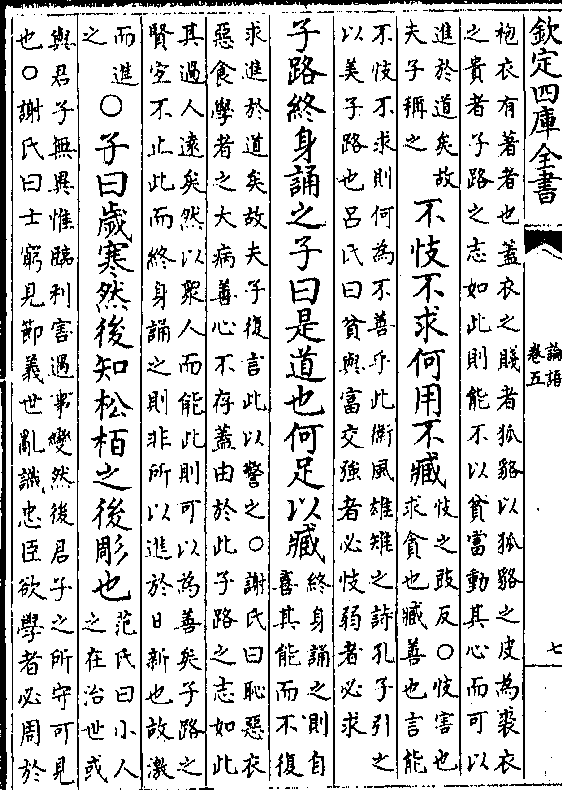 欽定四庫全書
論語
卷五
七
袍衣有著者也蓋衣之賤者狐貉以狐貉之皮為裘衣
之貴者子路之志如此則能不以貧富動其心而可以
進於道矣故
夫子稱之
不忮不求何用不臧
忮之豉反○忮害也
求貪也臧善也言能
不忮不求則何為不善乎此衛風雄雉之詩孔子引之
以美子路也呂氏曰貧與富交強者必忮弱者必求
子路終身誦之子曰是道也何足以臧
終身誦之則自
喜其能而不復
求進於道矣故夫子復言此以警之○謝氏曰恥惡衣
惡食學者之大病善心不存蓋由於此子路之志如此
其過人遠矣然以衆人而能此則可以為善矣子路之
賢宜不止此而終身誦之則非所以進於日新也故激
而進
之
○子曰歲寒然後知松栢之後彫也
范氏曰小人
之在治世或
與君子無異惟臨利害遇事變然後君子之所守可見
也○謝氏曰士窮見節義世亂識忠臣欲學者必周於